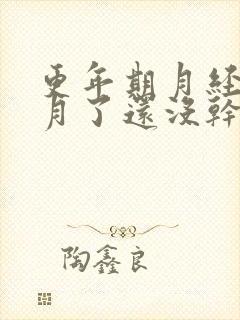 更年期月经
月了還没幹
陶鑫良